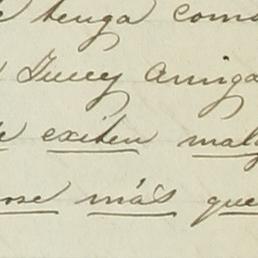 tenga como
y Amiga
exiten mal
rse más que